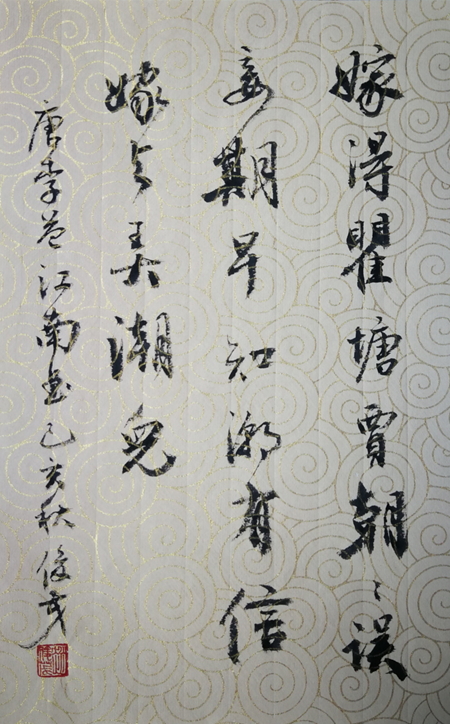 嫁得瞿塘賈朝〻误
妾期早知潮有信
嫁与弄潮兒
唐李益江南曲己亥秋俊